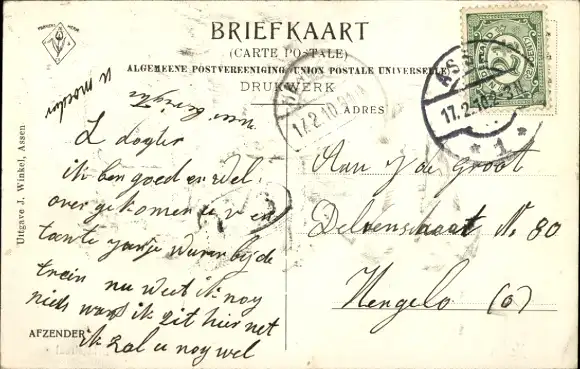 BRIEFKAART
(CARTE POSTALE)
ALGEMEENE POSTVEREENIGING (UNION POSTALE UNIVERSELLE)
DRUKWERK
ADRES
ASSEN
17.2.10.2-3N
* 1 *
17.2.10
Uitgave J. Winkel, Assen
L dogter
ik ben goed en wel
over gekomen u v en
tante jansje waren bij de
trein nu weet ik nog
niets want ik zit hier net
ik zal u nog wel
u moeder
AFZENDER
Aan J de Groot
Deldenstraat No. 80
Hengelo (O)